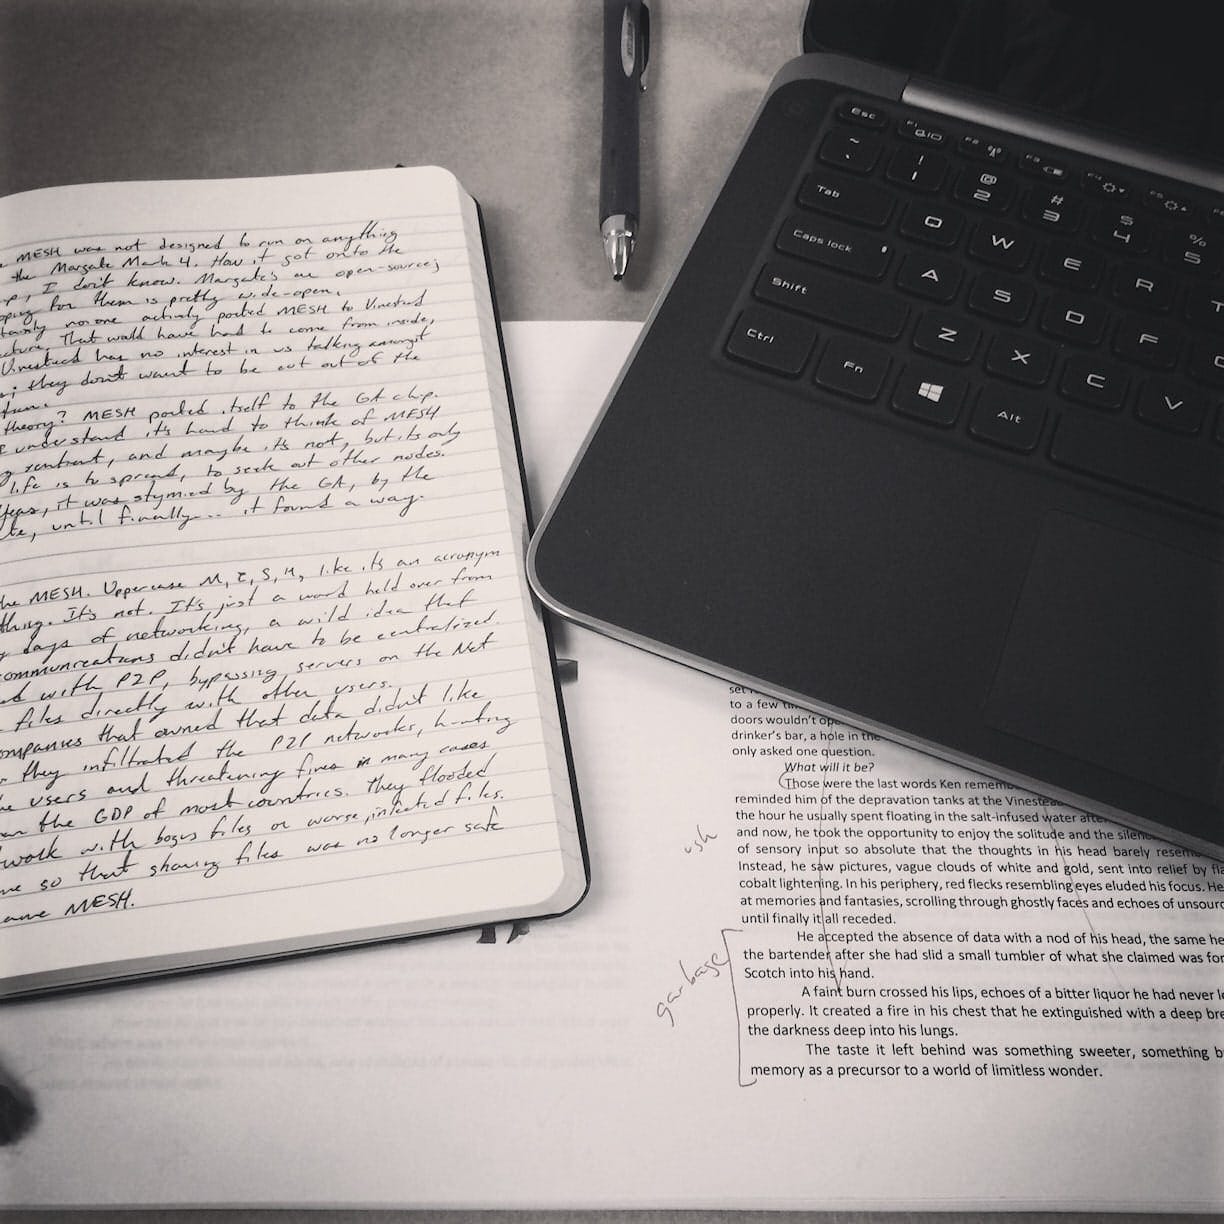 MESH was not designed to run on anything
the Margate Mark 4. How it got onto the
I don't know. Margate's are open-source;
for them is pretty wide-open.
no one actively ported MESH to Vinestead
That would have had to come from inside,
Vinestead has no interest in us talking amongst
; they don't want to be cut out of the
theory? MESH ported itself to the GA chip.
understand it's hard to think of MESH
and maybe it's not, but its only
life is to spread, to seek out other nodes.
years, it was stymied by the GA, by the
until finally... it found a way.
the MESH. Uppercase M, E, S, H, like it's an acronym
thing. It's not. It's just a word held over from
days of networking, a wild idea that
communications didn't have to be centralized.
with P2P, bypassing servers on the Net
files directly with other users.
companies that owned that data didn't like
they infiltrated the P2P networks, hunting
users and threatening fines in many cases
than the GDP of most countries. They flooded
work with bogus files or worse, infected files.
so that sharing files was no longer safe
came MESH.
Esc F1 F2 F3 F4 F5
~ ` ! 1 @ 2 # 3 $ 4 % 5
Tab Q W E R T
Caps lock A S D F
Shift Z X C V
Ctrl Fn Alt
set
to a few
doors wouldn't
drinker's bar, a hole in the
only asked one question.
What will it be?
Those were the last words Ken
reminded him of the depravation tanks at the
the hour he usually spent floating in the salt-infused water
and now, he took the opportunity to enjoy the solitude and the
of sensory input so absolute that the thoughts in his head barely
Instead, he saw pictures, vague clouds of white and gold, sent into relief by
cobalt lightening. In his periphery, red flecks resembling eyes eluded his focus. He
at memories and fantasies, scrolling through ghostly faces and echoes of
until finally it all receded.
garbage
He accepted the absence of data with a nod of his head, the same
the bartender after she had slid a small tumbler of what she claimed was
Scotch into his hand.
A faint burn crossed his lips, echoes of a bitter liquor he had never
properly. It created a fire in his chest that he extinguished with a deep
the darkness deep into his lungs.
The taste it left behind was something sweeter, something
memory as a precursor to a world of limitless wonder.